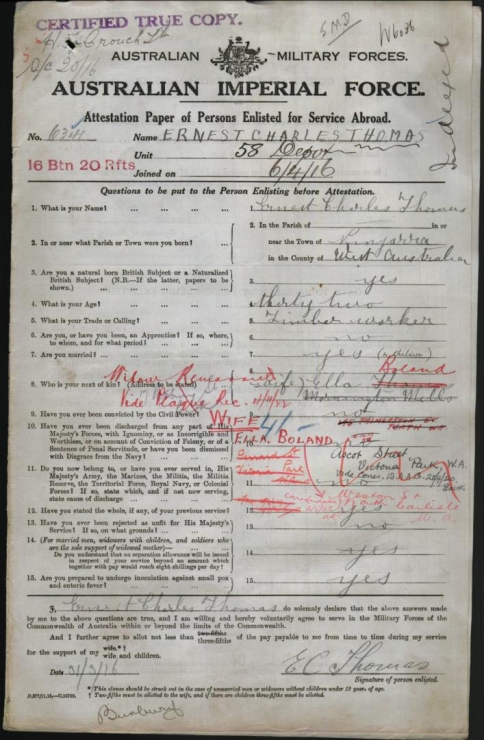 CERTIFIED TRUE COPY.
AUSTRALIAN MILITARY FORCES.
AUSTRALIAN IMPERIAL FORCE.
Attestation Paper of Persons Enlisted for Service Abroad.
No. Name ERNEST CHARLES THOMAS
Unit 58 Depot
16 Btn 20 Rfts
Joined on 6/4/16
Questions to be put to the Person Enlisting before Attestation.
1. What is your Name? 1. Ernest Charles Thomas
2. In or near what Parish or Town were you born? 2. In the Parish of in or
near the Town of Pinjarra
in the County of West Australia
3. Are you a natural born British Subject or a Naturalized
British Subject? (N.B.—If the latter, papers to be
shown.) 3. yes
4. What is your Age? 4. thirty two
5. What is your Trade or Calling? 5. Timber worker
6. Are you, or have you been, an Apprentice? If so, where,
to whom, and for what period? 6. no
7. Are you married? 7. yes
Boland
8. Who is your next of kin? (Address to be stated) (wife) Ella Thomas
Widow Remarried
Vide Plaque Rec. Mornington Mills
9. Have you ever been convicted by the Civil Power? not
WIFE
10. Have you ever been discharged from any part of His
Majesty's Forces, with Ignominy, or as Incorrigible and
Worthless, or on account of Conviction of Felony, or of a
Sentence of Penal Servitude, or have you been dismissed
with Disgrace from the Navy?
BOLAND
Ascot Street
Victoria Park, W.A.
11. Do you now belong to, or have you ever served in, His
Majesty's Army, the Marines, the Militia, the Militia
Reserve, the Territorial Force, Royal Navy, or Colonial
Forces? If so, state which, and if not now serving,
state cause of discharge 11.
Carlisle
12. Have you stated the whole, if any, of your previous service? 12. yes
13. Have you ever been rejected as unfit for His Majesty's
Service? If so, on what grounds? 13. no
14. (For married men, widowers with children, and soldiers who
are the sole support of widowed mother)—
Do you understand that no separation allowance will be issued
in respect of your service beyond an amount which
together with pay would reach eight shillings per day? 14. yes
15. Are you prepared to undergo inoculation against small pox
and enteric fever? 15. yes
I, Ernest Charles Thomas do solemnly declare that the above answers made
by me to the above questions are true, and I am willing and hereby voluntarily agree to serve in the Military Forces of the
Commonwealth of Australia within or beyond the limits of the Commonwealth.
And I further agree to allot not less than two-fifths three-fifths of the pay payable to me from time to time during my service
for the support of my wife.*† wife and children.
Date 31/3/16 E C Thomas
Signature of person enlisted.
* This clause should be struck out in the case of unmarried men or widowers without children under 18 years of age.
† Two-fifths must be allotted to the wife, and if there are children three-fifths must be allotted.
Bunbury